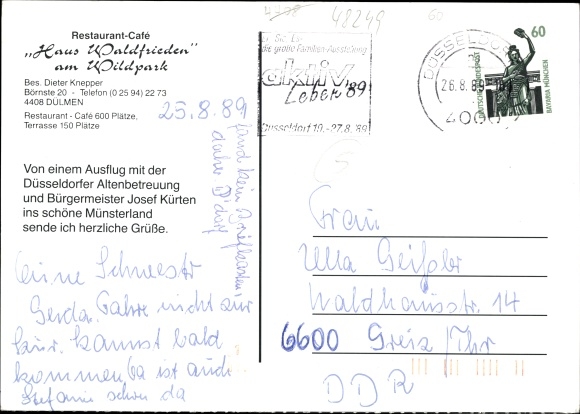 Restaurant-Café
„Haus Waldfrieden"
am Wildpark
Bes. Dieter Knepper
Börnste 20 - Telefon (0 25 94) 22 73
4408 DÜLMEN
Restaurant - Café 600 Plätze,
Terrasse 150 Plätze
25.8.89
Von einem Ausflug mit der
Düsseldorfer Altenbetreuung
und Bürgermeister Josef Kürten
ins schöne Münsterland
sende ich herzliche Grüße.
Gerda. Fahre nicht zur
kannst bald
kommen Da ist auch
Stefanie schon da
48249
60
die große Familien-Ausstellung
aktiv
Leben '89
Düsseldorf 19.-27.8.'89
DÜSSELDORF
26.8.89
4000
60
DEUTSCHE BUNDESPOST
BAVARIA MÜNCHEN
Frau
Ulla Geißler
Waldhausstr. 14
6600 Greiz/Thr
DDR